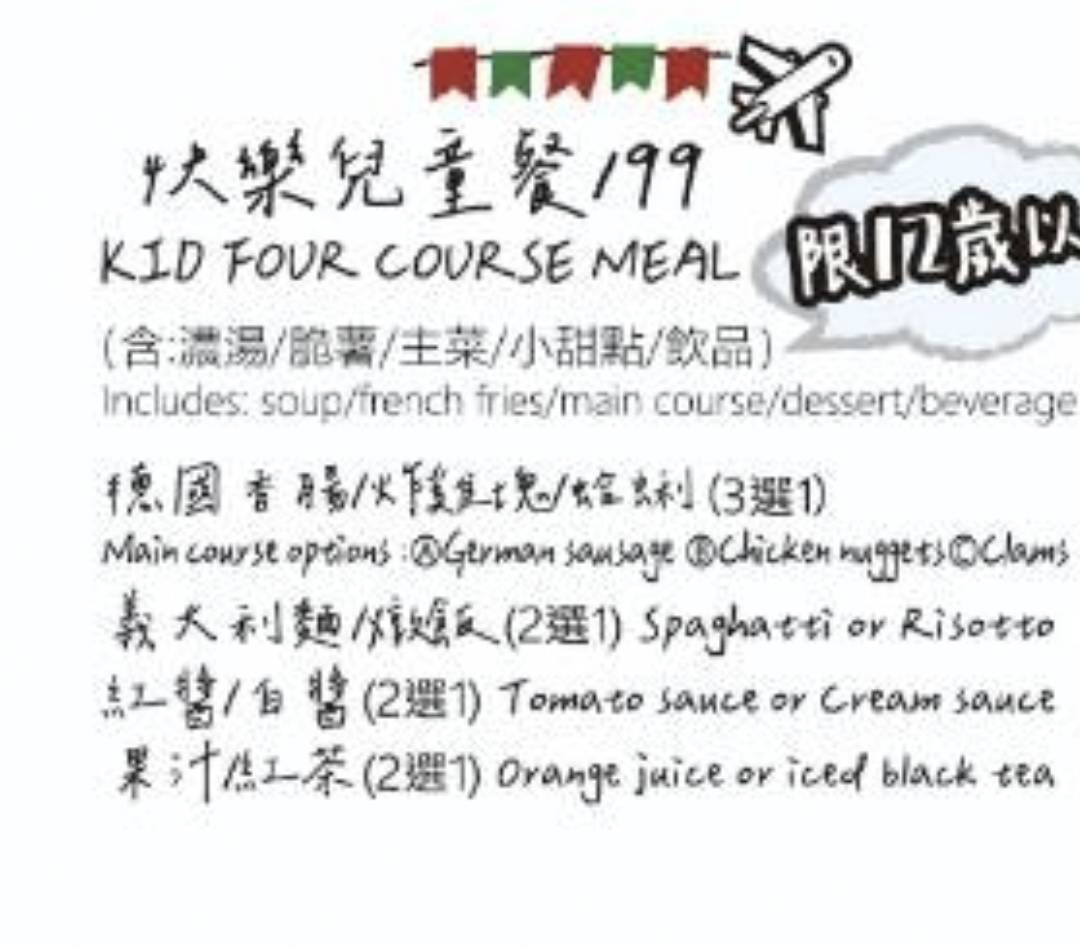 快樂兒童餐/199
KID FOUR COURSE MEAL
限12歲以
(含:濃湯/脆薯/主菜/小甜點/飲品)
Includes: soup/french fries/main course/dessert/beverage
德國香腸/炸雞塊/蛤蜊(3選1)
Main course options :ⒶGerman sausage ⒷChicken nuggetsⒸClams
義大利麵/燉飯(2選1) Spaghatti or Risotto
紅醬/白醬(2選1) Tomato sauce or Cream sauce
果汁/紅茶(2選1) Orange juice or iced black tea